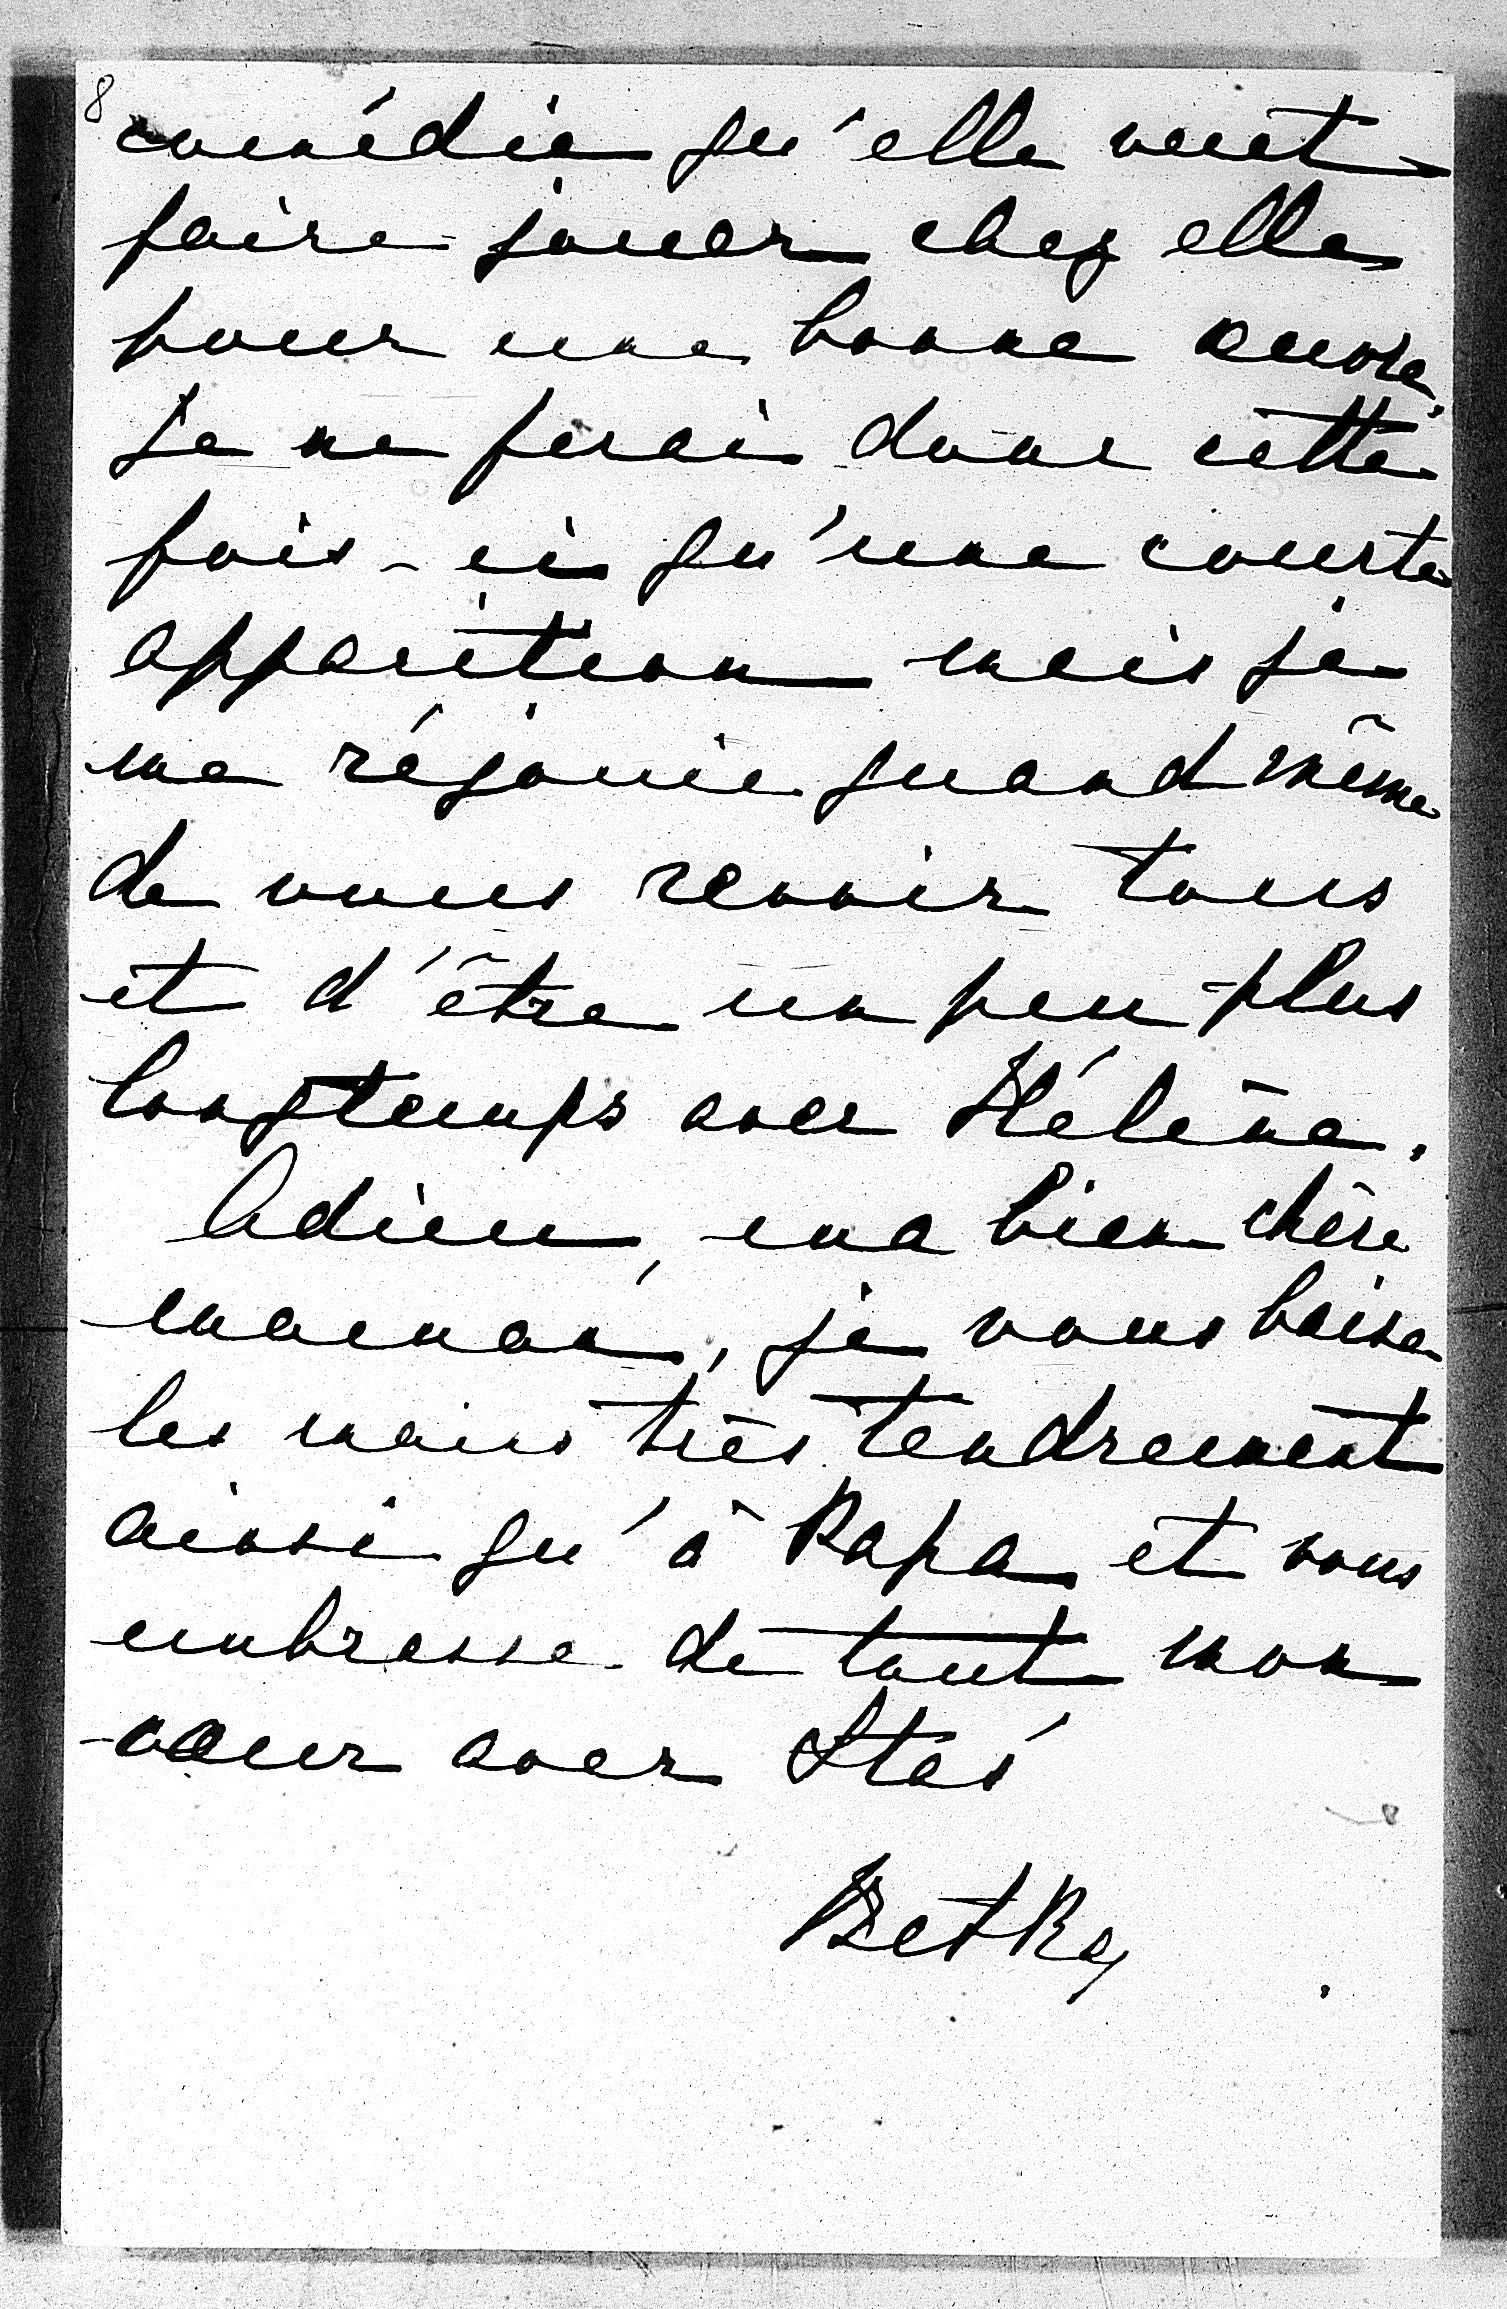 8
comédie qu'elle veut
faire jouer chez elle
pour une bonne œuvre.
Je ne ferai donc cette
fois-ci qu'une courte
apparition mais je
me réjouie quand même
de vous revoir tous
et d'être un peu plus
longtemps avec Hélène.
Adieu, ma bien chère
maman, je vous baise
les mains très tendrement
ainsi qu'à Papa et vous
embrasse de tout mon
cœur avec Stas
Betka